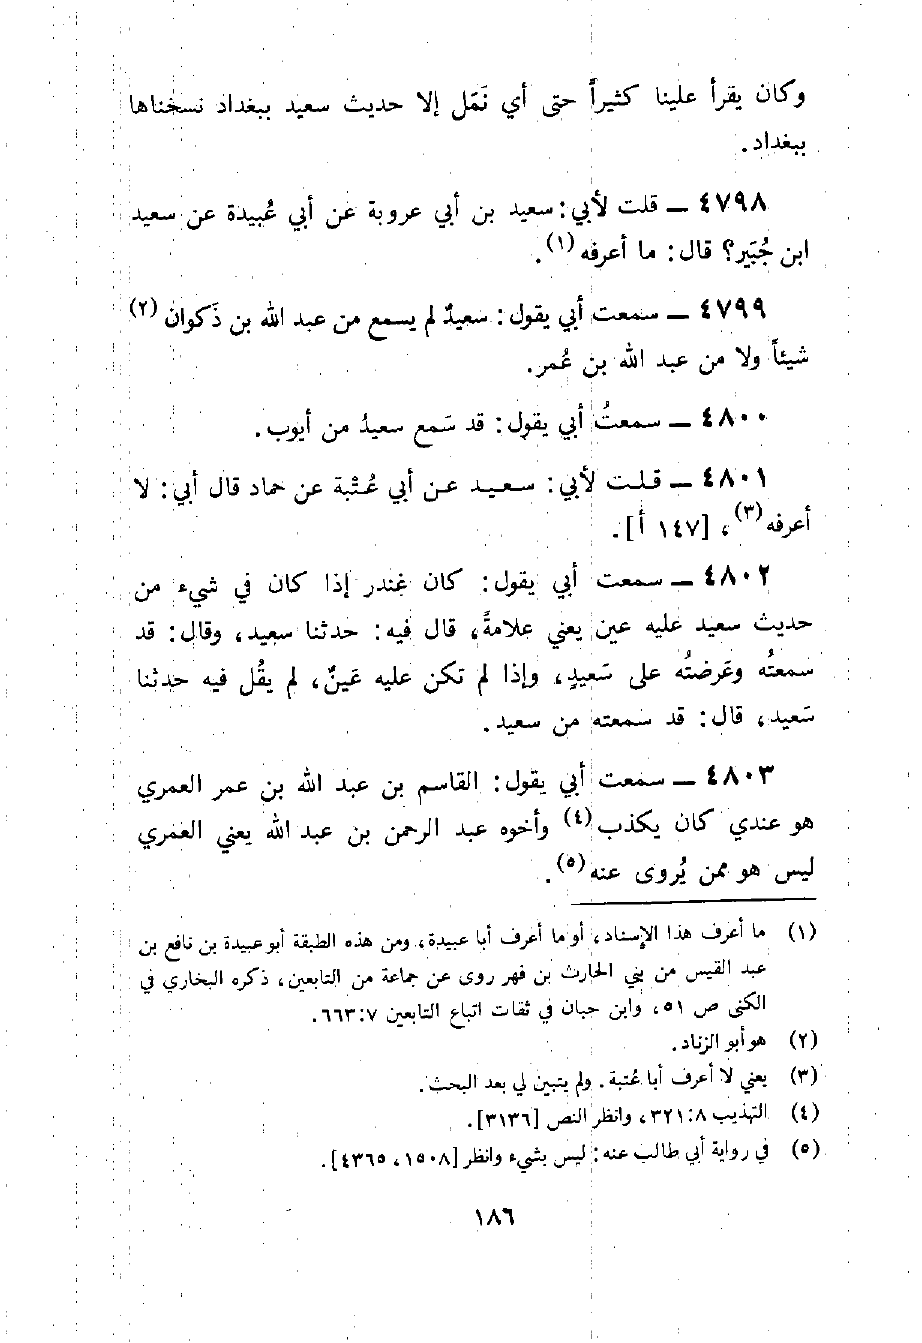 وكان يقرأ علينا كثيراً حتى أي نَمّل إلا حديث سعيد ببغداد نسخناها
ببغداد.
٤٧٩٨ ـ قلت لأبي: سعيد بن أبي عروبة عن أبي عُبيدة عن سعيد
ابن جُبَير؟ قال: ما أعرفه(١).
٤٧٩٩ ـ سمعت أبي يقول: سعيدٌ لم يسمع من عبد الله بن ذَكوان(٢)
شيئاً ولا من عبد الله بن عُمر.
٤٨٠٠ ـ سمعتُ أبي يقول: قد سَمع سعيدُ من أيوب.
٤٨٠١ ـ قلت لأبي: سعيد عن أبي عُتْبة عن حماد قال أبي: لا
أعرفه(٣)، [١٤٧ أ].
٤٨٠٢ ـ سمعت أبي يقول: كان غندر إذا كان في شيء من
حديث سعيد عليه عين يعني علامةً، قال فيه: حدثنا سعيد، وقال: قد
سمعتُه وعَرضتُه على سَعيدٍ، وإذا لم تكن عليه عَينٌ، لم يقُل فيه حدثنا
سَعيد، قال: قد سمعته من سعيد.
٤٨٠٣ ـ سمعت أبي يقول: القاسم بن عبد الله بن عمر العمري
هو عندي كان يكذب(٤) وأخوه عبد الرحمن بن عبد الله يعني العمري
ليس هو ممن يُروى عنه(٥).
(١) ما أعرف هذا الإسناد، أو ما أعرف أبا عبيدة، ومن هذه الطبقة أبو عبيدة بن نافع بن
عبد القيس من بني الحارث بن فهر روى عن جماعة من التابعين، ذكره البخاري في
الكنى ص ٥١، وابن حبان في ثقات اتباع التابعين ٦٦٣:٧.
(٢) هو أبو الزناد.
(٣) يعني لا أعرف أبا عُتبة. ولم يتبين لي بعد البحث.
(٤) التهذيب ٣٢١:٨، وانظر النص [٣١٣٦].
(٥) في رواية أبي طالب عنه: ليس بشيء وانظر [١٥٠٨، ٤٣٦٥].
١٨٦